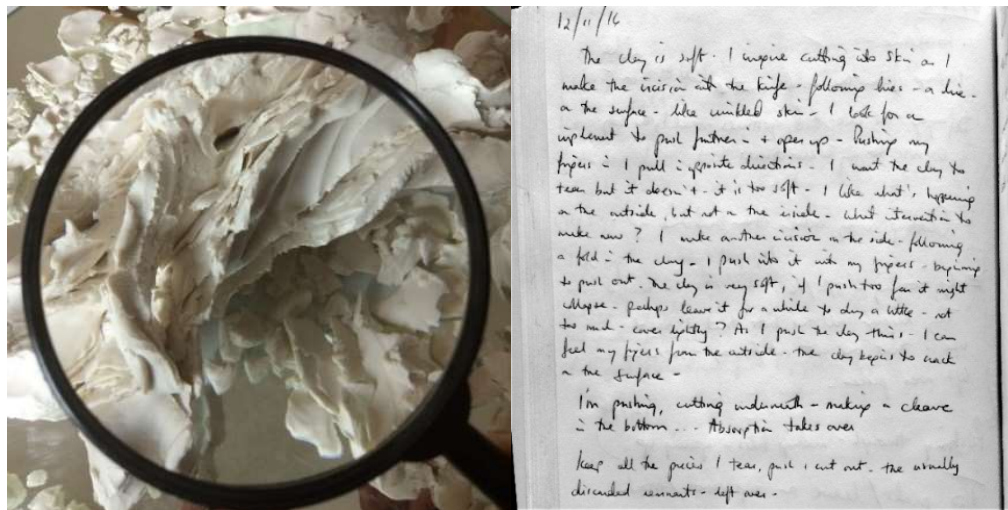 12/11/16
The clay is soft. I imagine cutting into skin as I
make the incision with the knife - following lines - a line -
on the surface - like wrinkled skin - I look for an
implement to push further in + open up - Pushing my
fingers in I pull in opposite directions - I want the clay to
tear but it doesn't - it is too soft - I like what's happening
on the outside, but not on the inside - what intervention to
make now? I make another incision on the side - following
a fold in the clay - I push into it with my fingers - beginning
to push out. The clay is very soft, if I push too far it might
collapse - perhaps leave it for a while to dry a little - not
too much - cover lightly? As I push the clay thins - I can
feel my fingers from the outside - the clay begins to crack
on the surface -
I'm pushing, cutting underneath - making a cleave
in the bottom ... Absorption takes over
Keep all the pieces I tear, push + cut out - the usually
discarded remnants - left over -